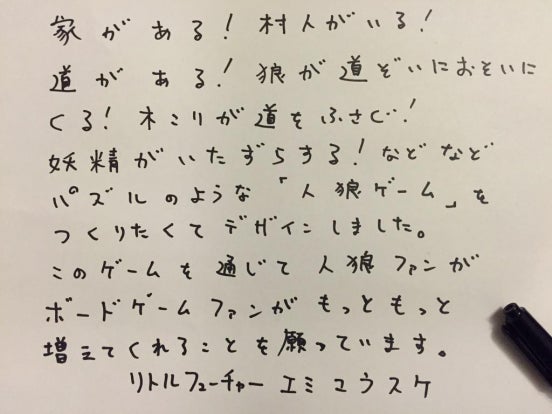 家がある！村人がいる！
道がある！狼が道ぞいにおそいに
くる！木こりが道をふさぐ！
妖精がいたずらする！などなど
パズルのような「人狼ゲーム」を
つくりたくてデザインしました。
このゲームを通じて人狼ファンが
ボードゲームファンがもっともっと
増えてくれることを願っています。
リトルフューチャー エミコウスケ